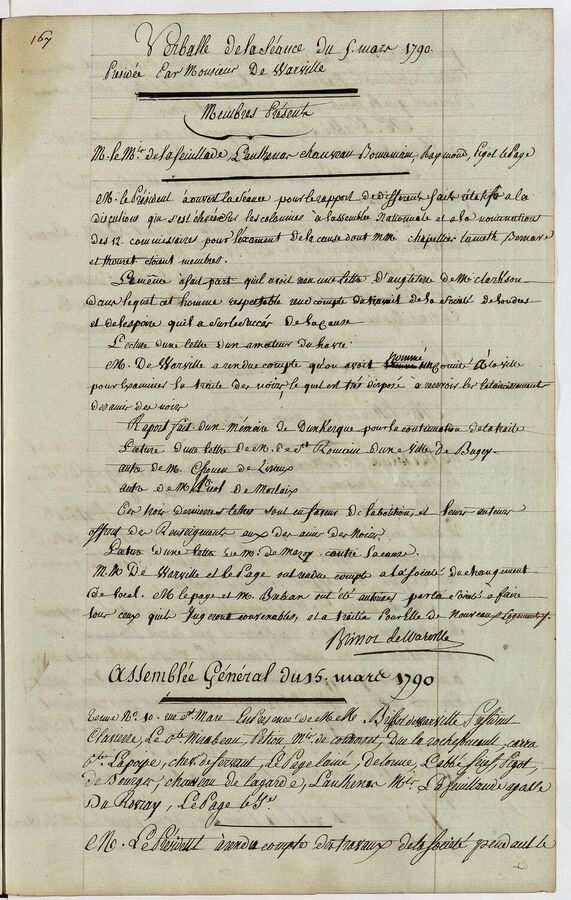 167
Verballe de la Séance du 5. mars 1790.
Présidée Par Monsieur De Warville
Membres Présents
M. le Mis. de la feuillade, Lanthenas chauveau Bonneman, Raymond, Pigot le Page
M. le Président à ouvert la Séance pour le rapport de differents faits rélatifs a la
discutions qui s'est élevée sur les colonnies à l'assemblée Nationalle et a la nomination
des 12. commissaires pour l'exament de la cause dont mm. chapellier Lameth, Bernave
et thouret étoient membres.
Le même a fait part qu'il avoit reçu une lettre d'angleterre de M. clarkson
dans lequel cet homme respectable rend compte du travail de la Société de Londres
et de l'espoire qu'il a sur le succès de la Cause
Lecture d'une lettre d'un amateur du havre
M. De Warville a rendu compte qu'on avoit nommé un Comité à la ville
pour Examiner la traite des noirs, le quel est très disposé a recevoir les Eclaircissement
des amis des noirs
Raport fait d'un mémoire de Dunkerque pour la continuation de la traite
Lecture d'une lettre de M. de St. Romain d'une ville de Bugey
autre de M. de Lizieux
autre de M. Picot de Morlaix
Ces trois dernieres lettres sont en faveur de l'abolition, et leurs auteurs
offrent des Renseignements aux des amis des Noirs
Lecture d'une lettre de M. de Mazey contre la cause.
M.M. De Warville et le Page ont rendu compte a la Société du changement
de local. M. le page et M. Braban ont été autorisés par la société a faire
tous ceux qu'ils Jugeront convenables, et a traitter Pour Elle de Nouveaux Logements.
Brissot de Warville
Assemblée Général du 15. mars 1790
tenue No. 10. rue St. Marc En Presence de M.M. Brissot de warville President
Claviere, Le Cte Mirabeau, Petion, Mis. de condorcet, Duc la rochefoucault, carra
Lapoype, chev. de fervant, Le Page l'ainé, Delorme, L'abbé Pigot
de Bourges, chauveau de lagarde, Lanthenas Mis. La feuillade
Du Rovray, Le Page le Je.
M. Le Président à rendu compte des travaux de la Société pendant le